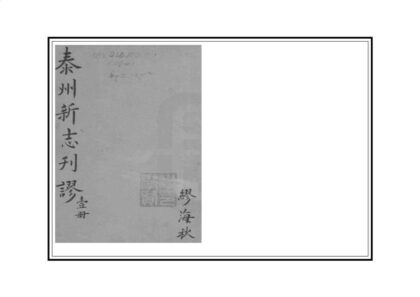 泰州新志刊謬
壹册
繆海秋